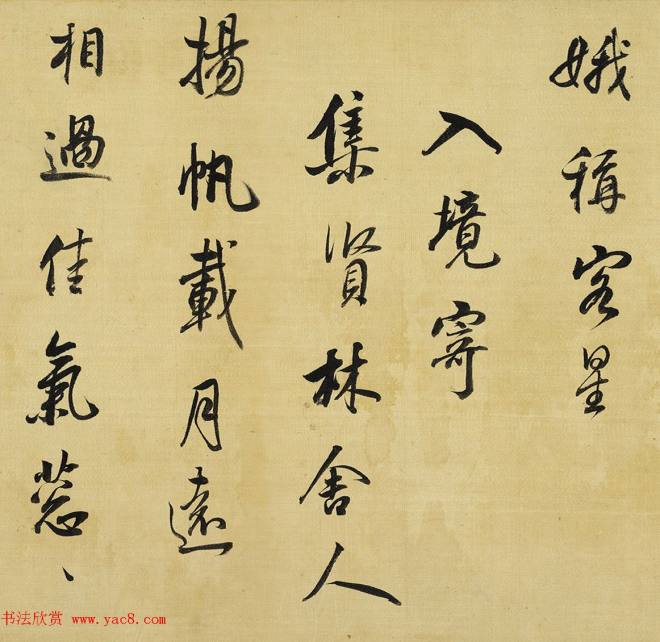 娥稱客星
入境寄
集賢林舍人
揚帆載月遠
相過佳氣蔥、
书法欣赏 www.yac8.com